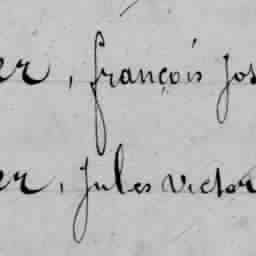 er, françois Jos
er, Jules Victor